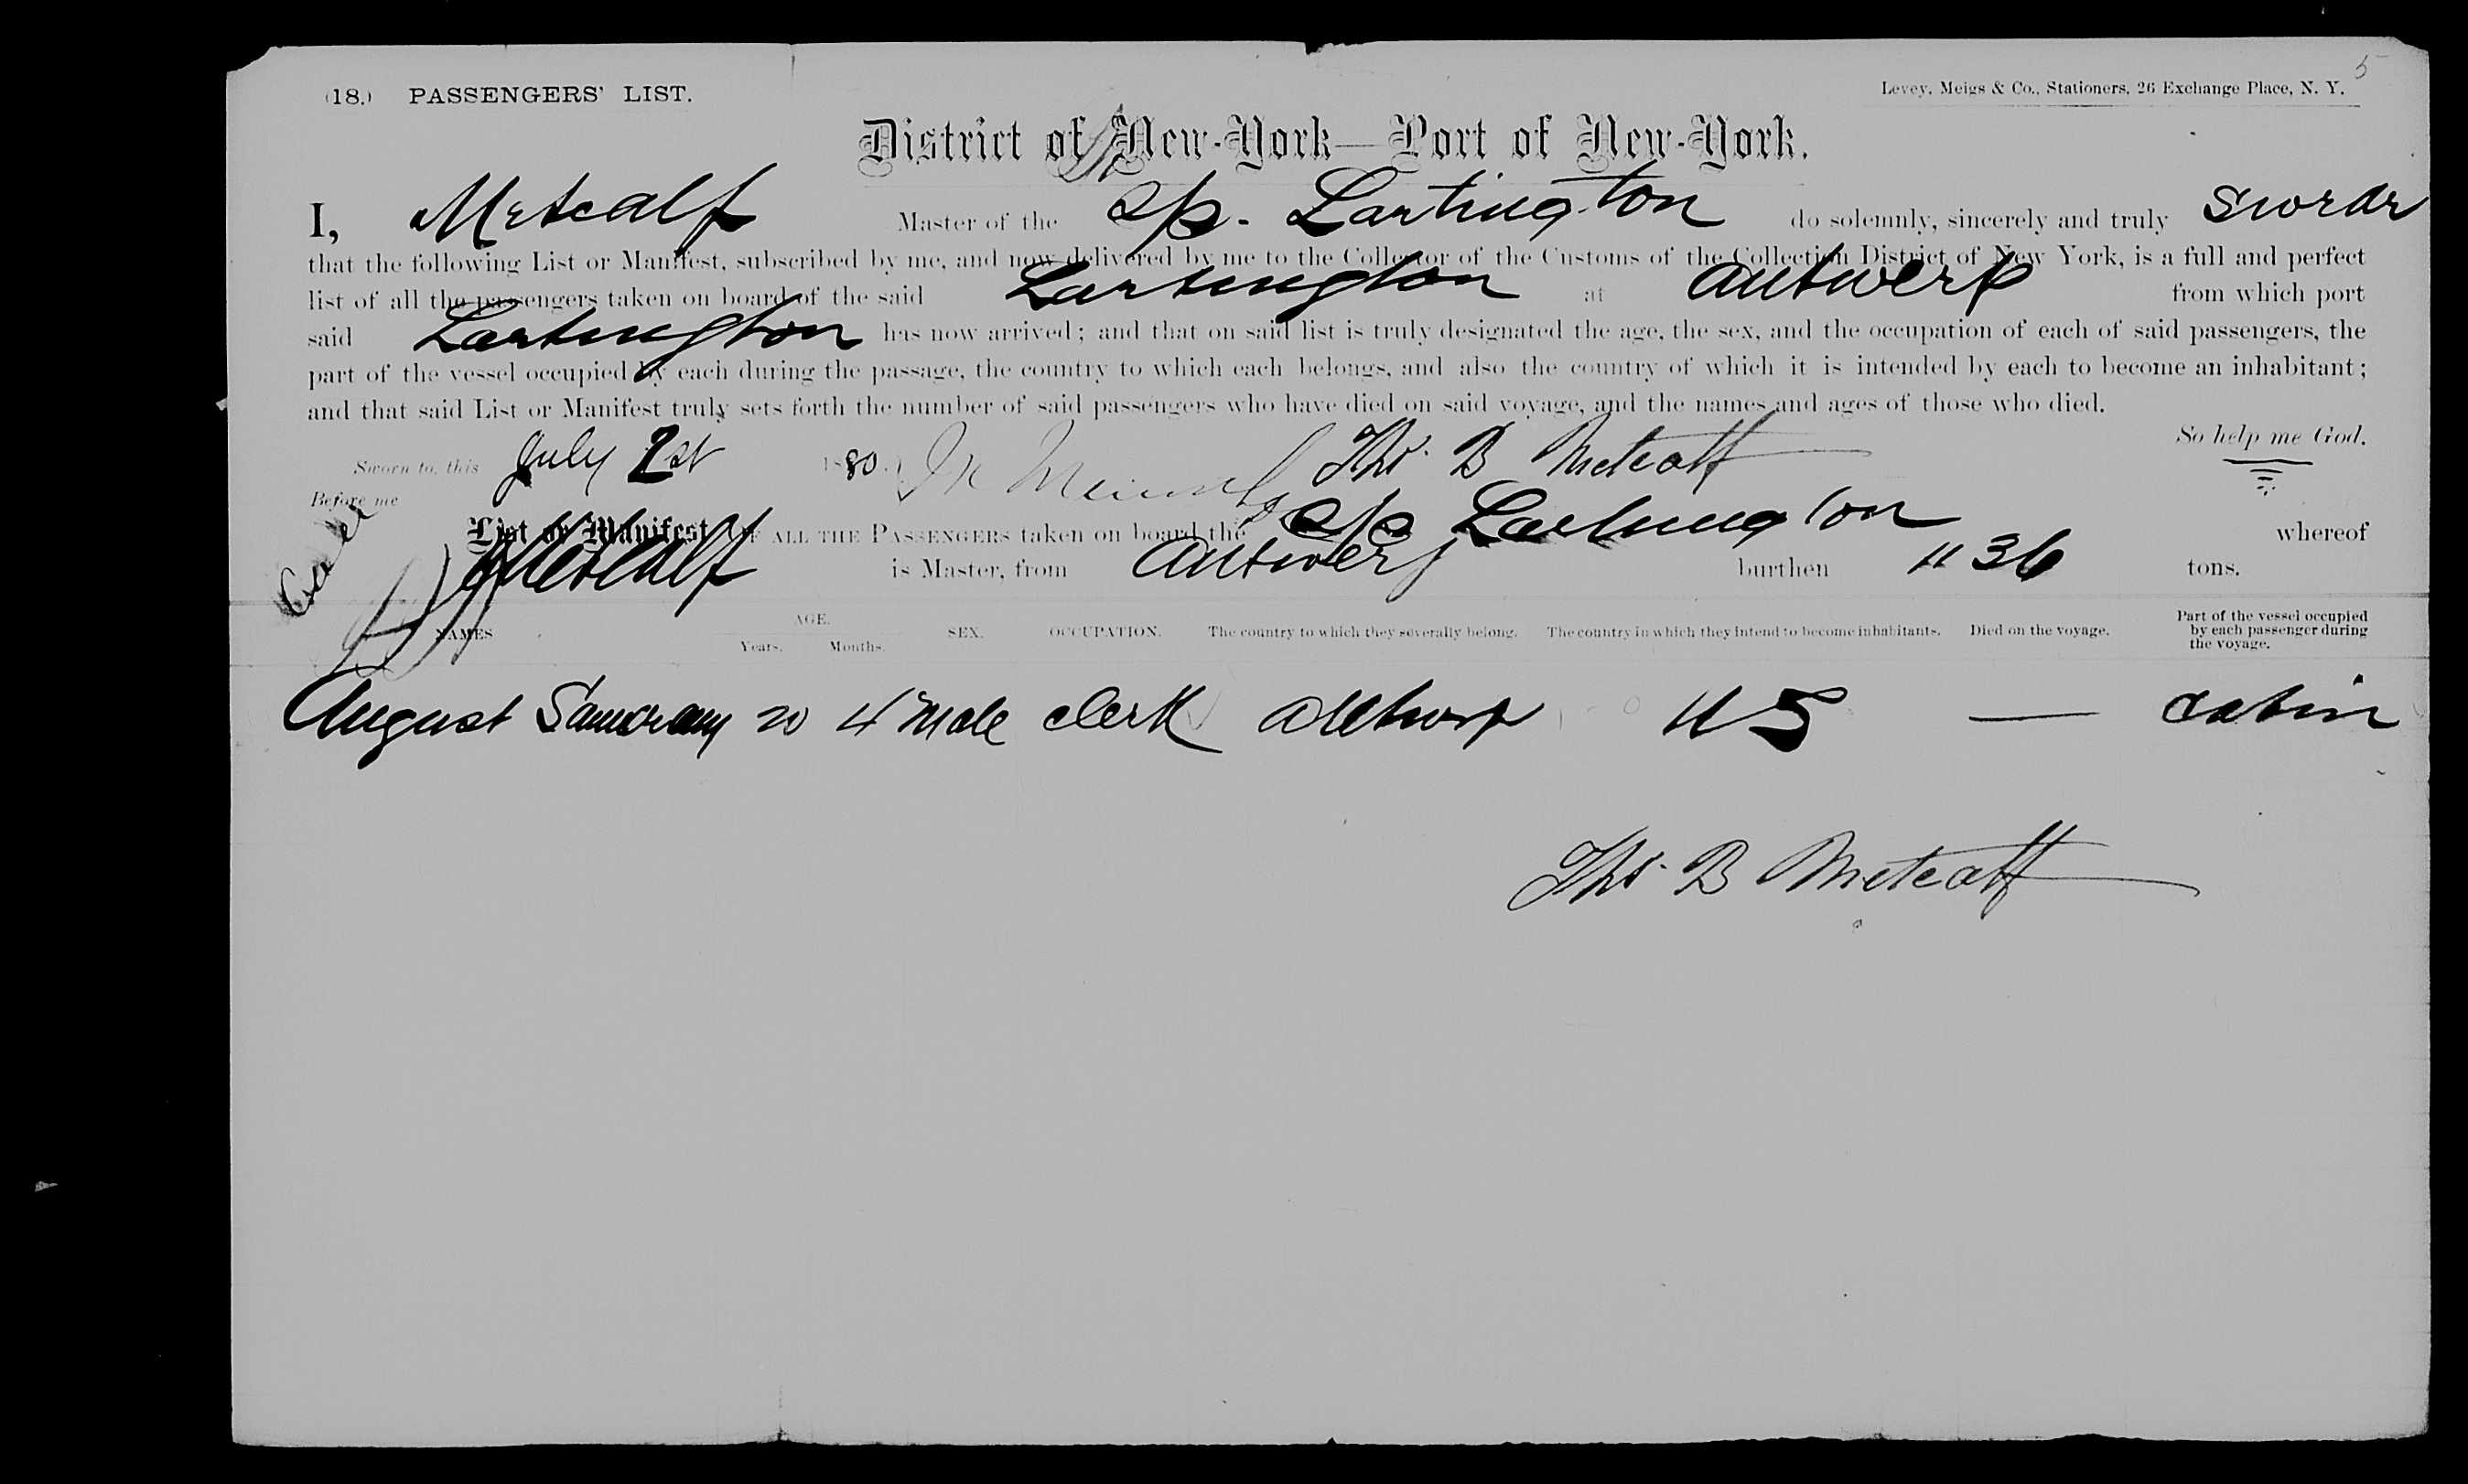 (18.) PASSENGERS' LIST.
Levey, Meigs & Co., Stationers, 26 Exchange Place, N. Y.
5
District of New-York—Port of New-York.
I, Metcalf Master of the S/s. Lartington do solemnly, sincerely and truly swear
that the following List or Manifest, subscribed by me, and now delivered by me to the Collector of the Customs of the Collection District of New York, is a full and perfect
list of all the passengers taken on board of the said Lartington at Antwerp from which port
said Lartington has now arrived; and that on said list is truly designated the age, the sex, and the occupation of each of said passengers, the
part of the vessel occupied by each during the passage, the country to which each belongs, and also the country of which it is intended by each to become an inhabitant;
and that said List or Manifest truly sets forth the number of said passengers who have died on said voyage, and the names and ages of those who died.
So help me God.
Sworn to, this July 1st 1880. Thos. B Metcalf
Before me
List or Manifest OF ALL THE PASSENGERS taken on board the S/s Lartington whereof
Metcalf is Master, from Antwerp burthen 1136 tons.
NAMES AGE. Years. Months. SEX. OCCUPATION. The country to which they severally belong. The country in which they intend to become inhabitants. Died on the voyage. Part of the vessel occupied by each passenger during the voyage.
August 20 4 Male Clerk Antwerp US — Cabin
Thos. B Metcalf